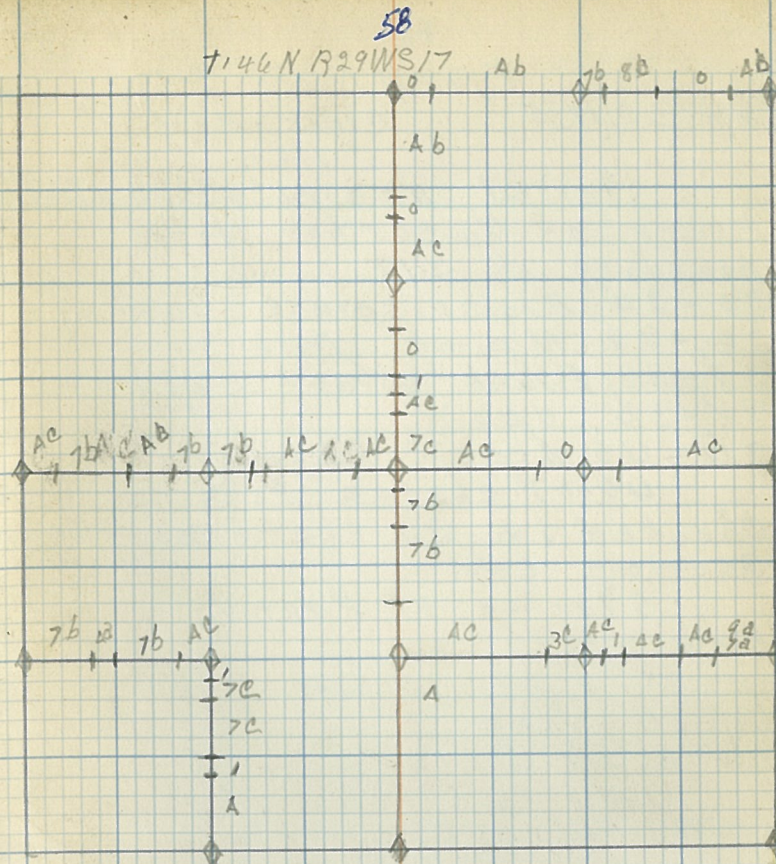 58
T.146 N R29WS17
0 Ab 7b 8b 0 Ab
Ab
0
Ac
0
1
Ac
Ac 7b A C AB 7b 7b AC AC AC 7c Ac 0 AC
7b
7b
7b 7b AC AC 3C AC 1 AC AC
A
1
7C
7C
1
A